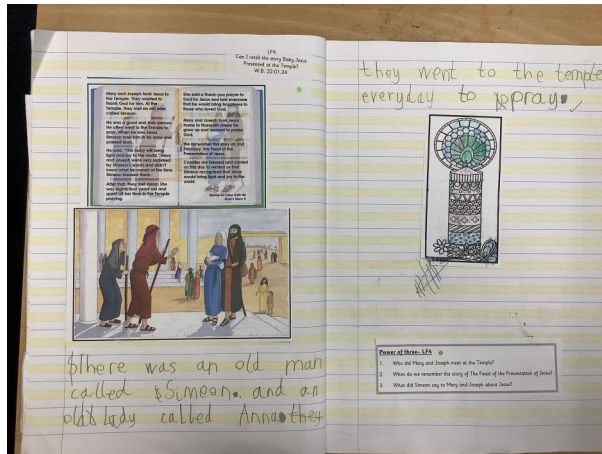 LF4
Can I retell the story Baby Jesus
Presented at the Temple?
W.B. 22.01.24
Mary and Joseph took Jesus to
the Temple. They wanted to
thank God for him. At the
Temple, they met an old man
called Simeon.
He was a good and holy person.
He often went to the Temple to
pray. When he saw Jesus
Simeon took him in his arms and
praised God.
He said, "This baby will bring
light and joy to the world." Mary
and Joseph were very surprised
by Simeon's words and didn't
know what he meant at the time.
Simeon blessed them.
After that, they met Anna. She
was eighty-four years old and
spent all her time in the Temple
praying.
She said a thank-you prayer to
God for Jesus and told everyone
that he would bring happiness to
those who loved God.
Mary and Joseph took Jesus
home to Nazareth where he
grew up and learned to praise
God.
We remember this story on 2nd
February, the Feast of the
Presentation of Jesus.
Candles are blessed and carried
on this day to remind us that
Simeon recognised that Jesus
would bring light and joy to the
world.
Based on Luke 2:22-40
God's Story 2
There was an old man
called Simeon. and an
old lady called Anna they
they went to the temple
everyday to pray.
Power of three- LF4
1. Who did Mary and Joseph meet at the Temple?
2. When do we remember the story of The Feast of the Presentation of Jesus?
3. What did Simeon say to Mary and Joseph about Jesus?